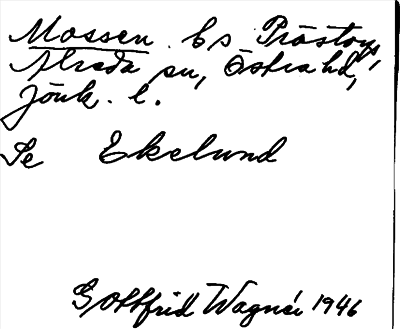 Mossen. bs Prästorp,
Alseda sn, Östra hd,
Jönk. l.
Se Ekelund
Gottfrid Wagnér 1946